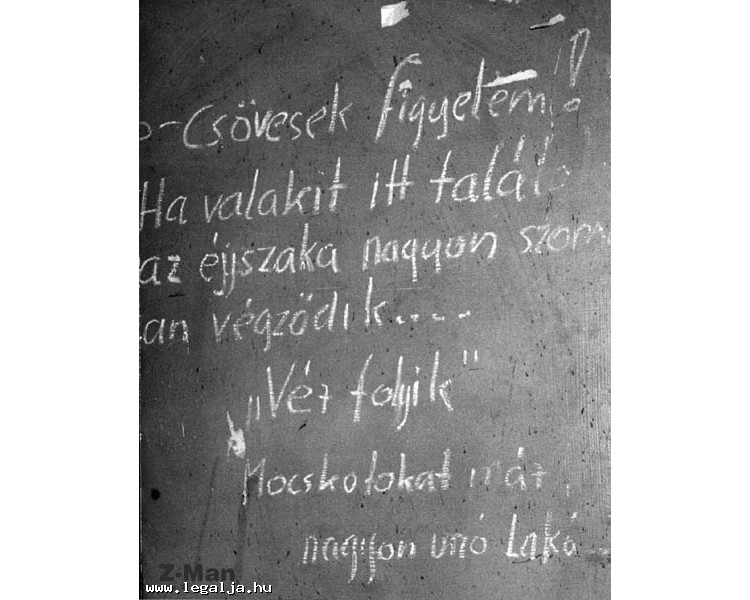 -Csövesek figyelem!
Ha valakit itt talál
az éjjszaka nagyon szom
an végződik....
"Vér folyik"
Mocskotokat már
nagyon unó Lakó...
Z-Man
www.legalja.hu